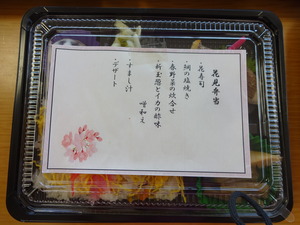 花見弁当
・花寿司
・鯛の塩焼き
・春野菜の炊合せ
・新玉葱とイカの酢味
噌和え
・すまし汁
・デザート